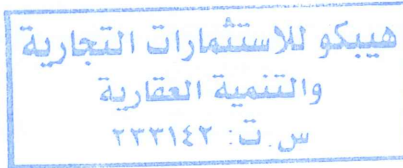 هيبكو للاستثمارات التجارية
والتنمية العقارية
س.ت: ٢٣٣١٤٢